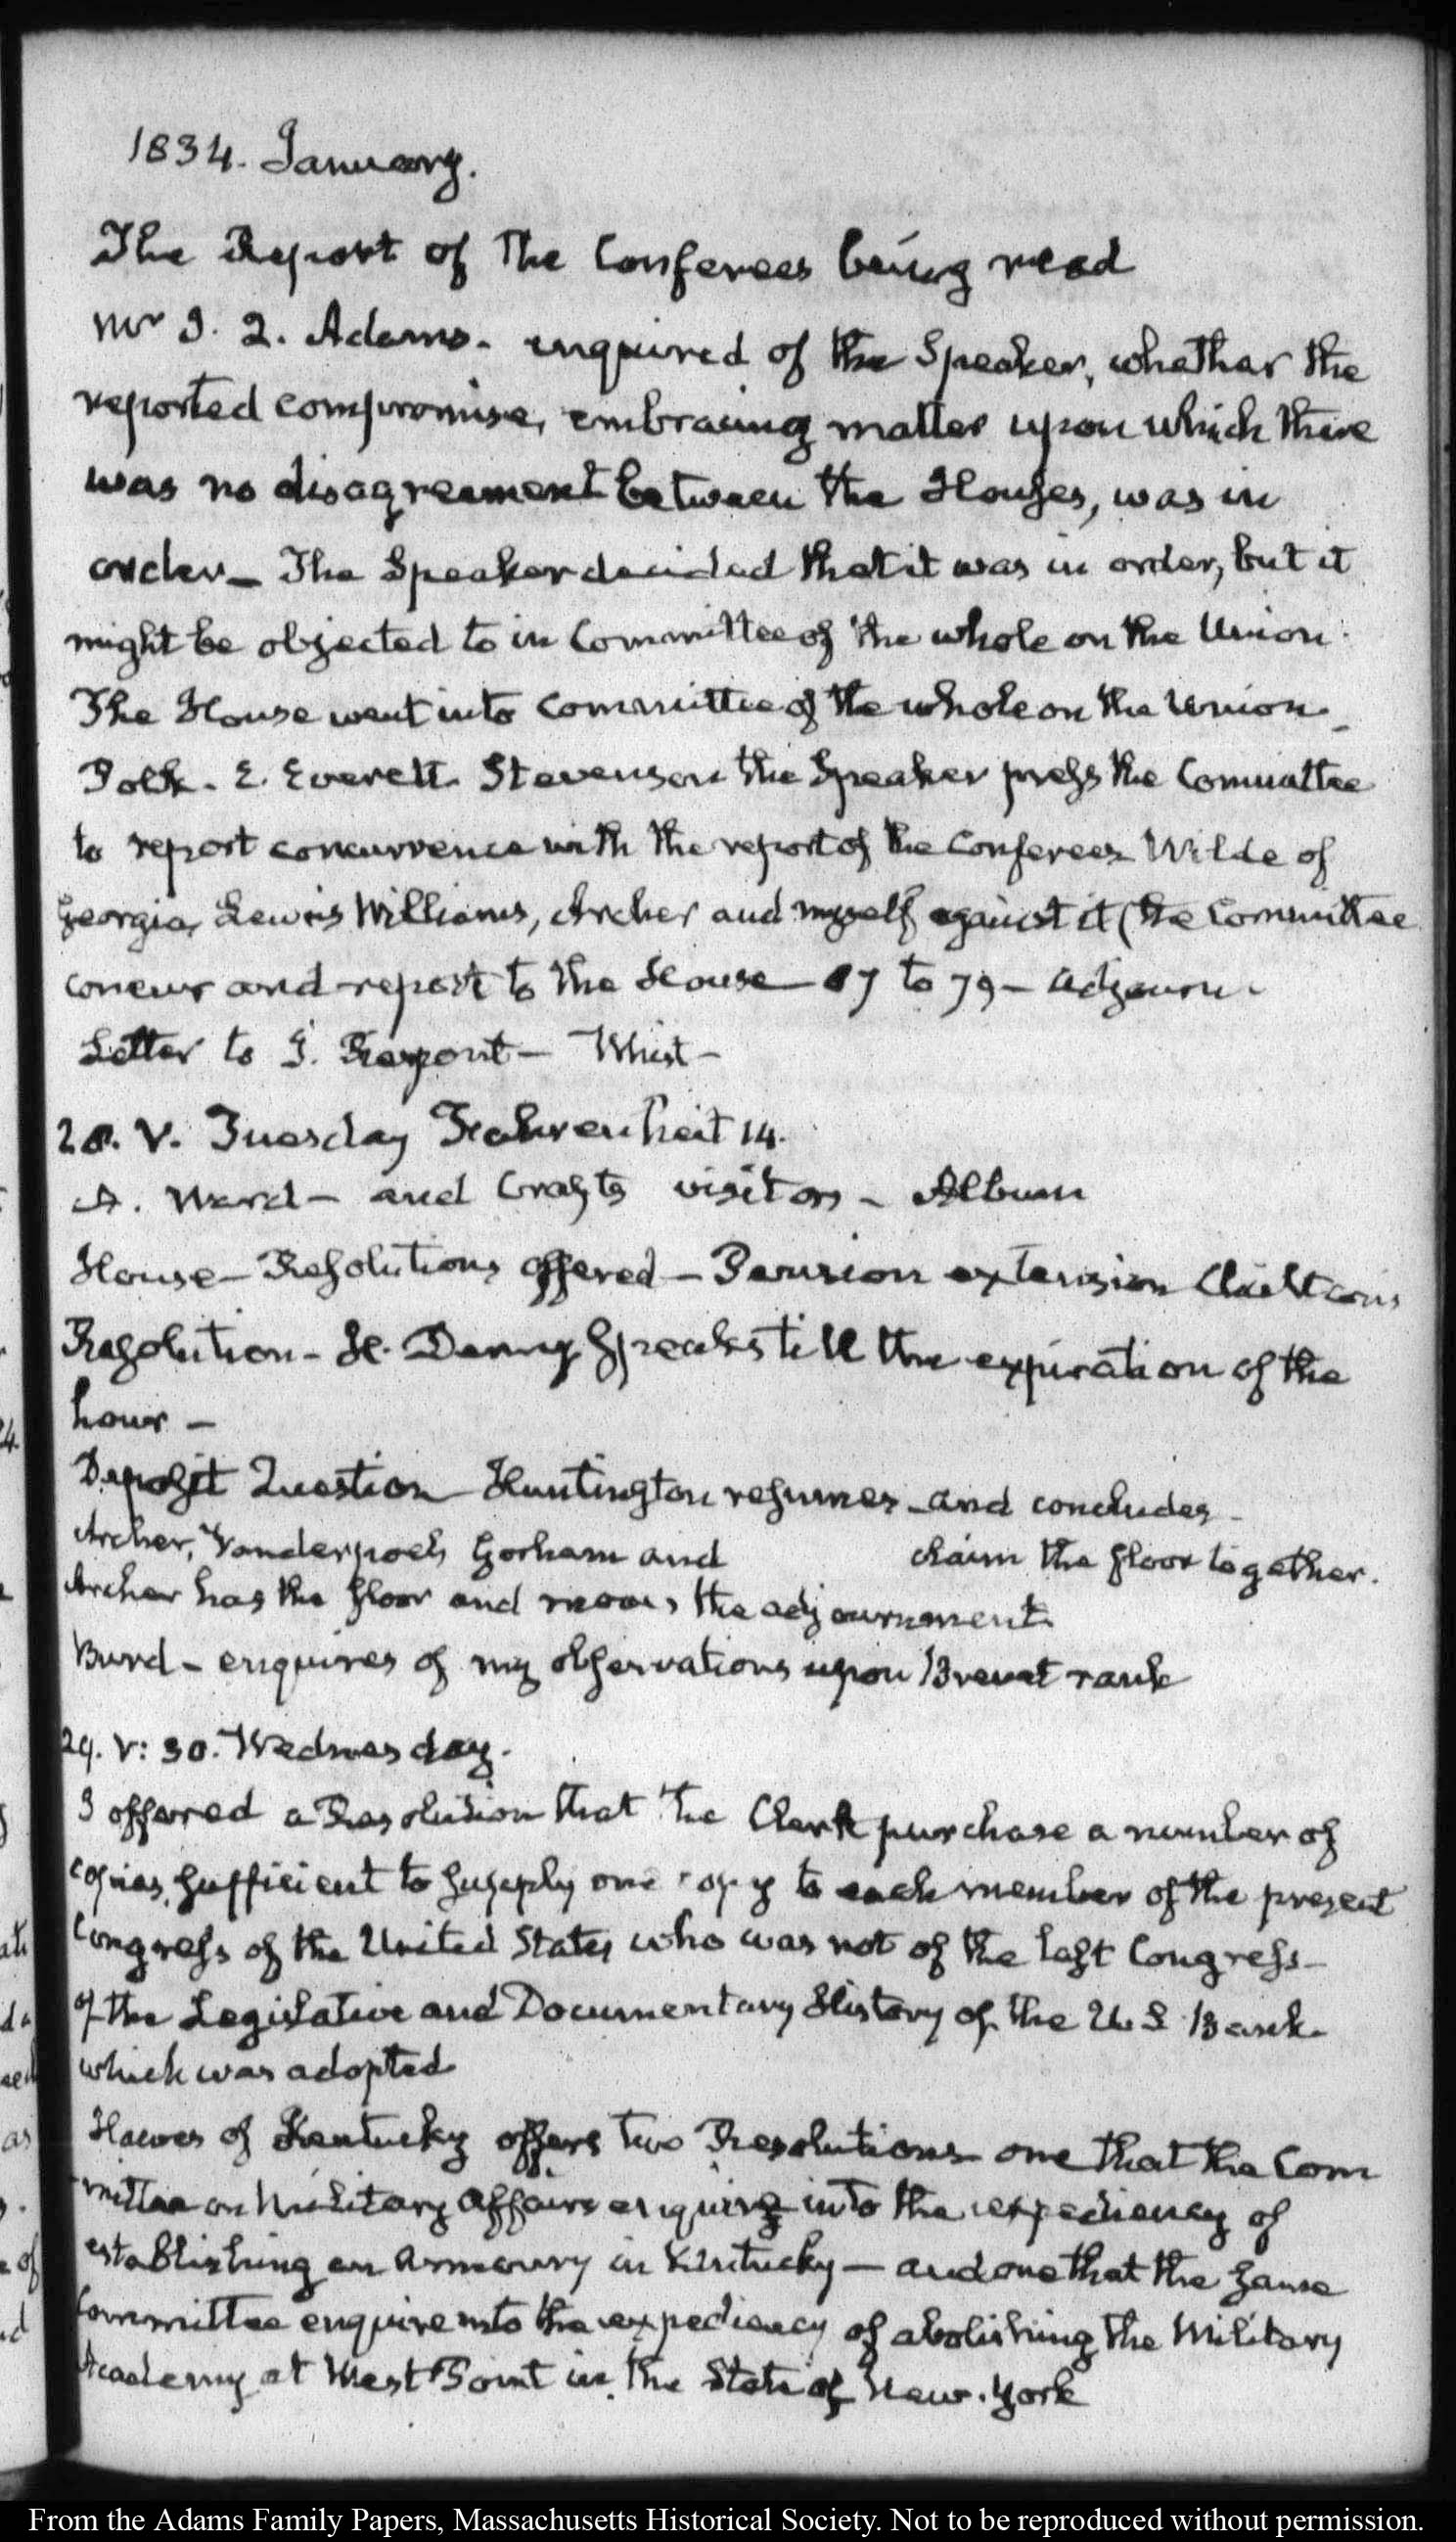 1834. January.
The Report of the Conferees being read
Mr J. Q. Adams. enquired of the Speaker, whether the
reported compromise, embracing matter upon which there
was no disagreement between the Houses, was in
order_ The Speaker decided that it was in order, but it
might be objected to in Committee of the whole on the Union.
The House went into Committee of the whole on the Union_
Polk. E. Everett. Stevenson the Speaker press the Committee
to report concurrence with the report of the Conferees Wilde of
Georgia, Lewis Williams, Archer and myself against it (the Committee
concur and report to the House — 87 to 79 — adjourn.
Letter to J. Pierpont — Whist —
28. V. Tuesday Fahrenheit 14.
A. Ward — and Crafts visitors — Album
House — Resolutions offered — Pension extension Chilton's
Resolution — H. Denny Speaks till the expiration of the
hour —
Deposit Question Huntington resumes and concludes —
Archer, Vanderpoel, Gorham and claim the floor together.
Archer has the floor and moves the adjournment
Burd — enquires of my observations upon Brevet rank
29. V: 30. Wednesday.
I offered a Resolution that the Clerk purchase a number of
copies, sufficient to supply one copy to each member of the present
Congress of the United States who was not of the last Congress —
of the Legislative and Documentary History of the U.S. Bank
which was adopted
Hawes of Kentucky offers two Resolutions one that the Com
mittee on Military Affairs enquire into the expediency of
establishing an Armoury in Kentucky — and one that the same
Committee enquire into the expediency of abolishing the Military
Academy at West Point in the State of New. York
From the Adams Family Papers, Massachusetts Historical Society. Not to be reproduced without permission.